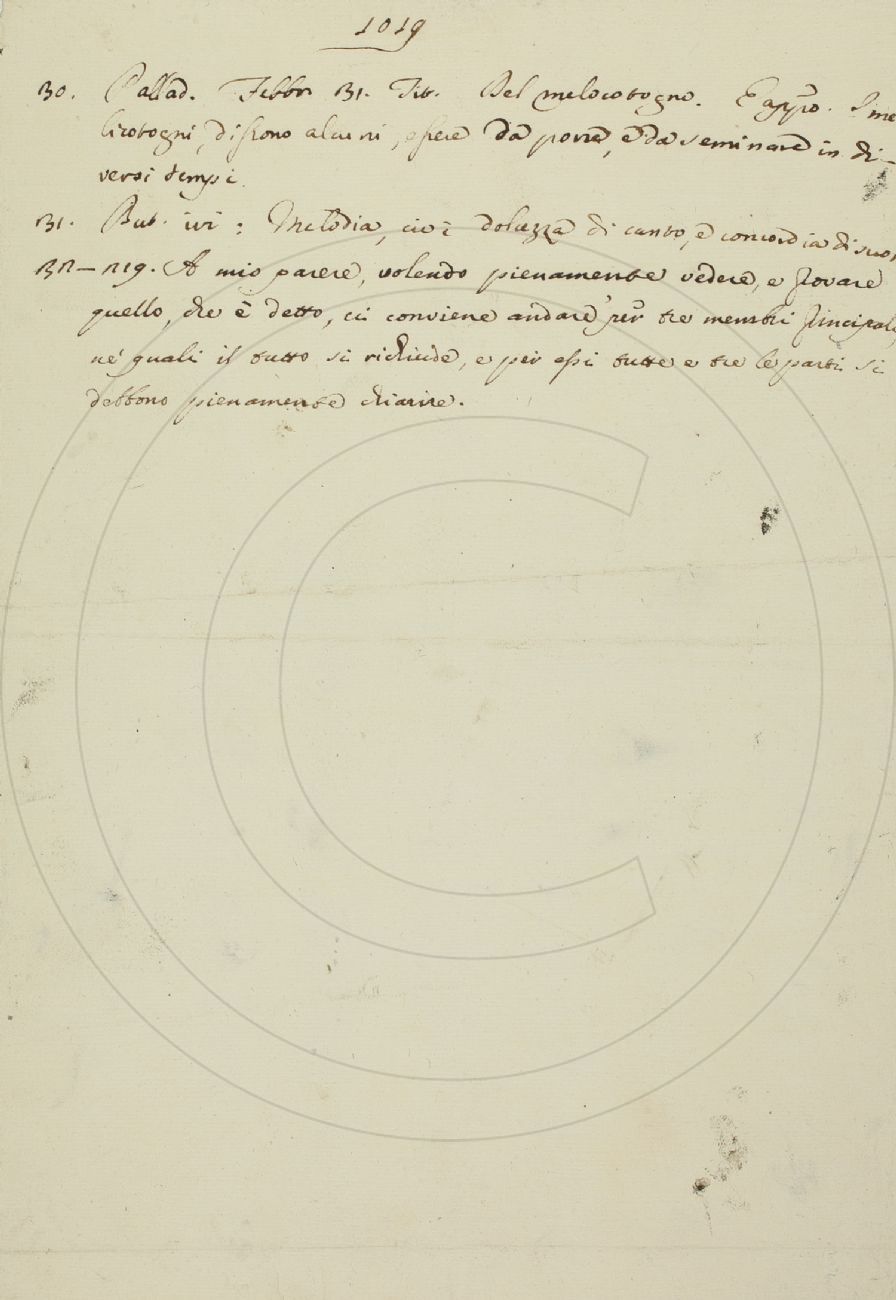 1019
30. Pallad. Febbr. 31. Tit. Del melocotogno. E appro. I me
licotogni, dissono alcuni, essere da porre, e da seminare in di-
versi tempi.
31. But. ivi: Melodia, cioè dolcezza di canto, e concordia di suo
32-219. A mio parere, volendo pienamente vedere, e provare
quello, che è detto, ci conviene andare per tre membri principali,
ne' quali il tutto si richiude, e per essi tutte e tre le parti si
debbono pienamente chiarire.